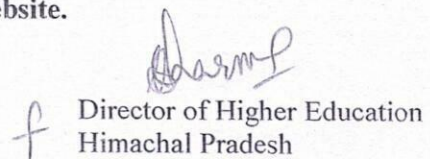 ebsite.
Sharma
Director of Higher Education
Himachal Pradesh